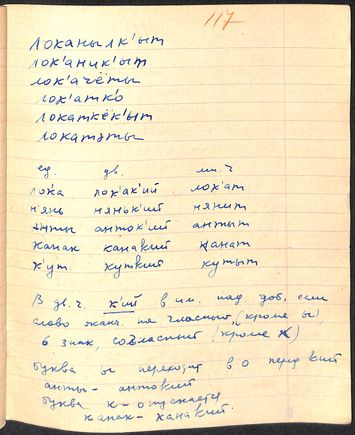 117
локанылк'ыт
лок'аник'ыт
лок'ачёты
лок'атко
локаткёк'ыт
локатэты
ед. дв. мн. ч
лока лок'ак'ий лок'ат
н'янь няньк'ий нянит
анты анток'ий антыт
канак канакий канат
к'ут куткий кутыт
В дв. ч. к'ий в им. пад доб, если
слово оканч. на гласный (кроме ы)
ь знак, согласный (кроме к)
буква ы переходит в о перед кий
анты - антокий
буква к - опускается
канак - канакий.